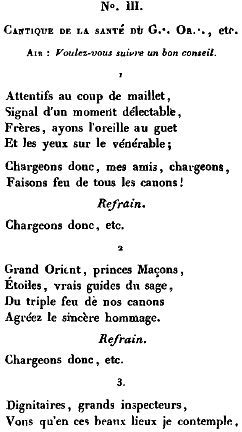 No. III.
Cantique de la santé du G.·. Or.·., etc.
Air : Voulez-vous suivre un bon conseil.
1
Attentifs au coup de maillet,
Signal d'un moment délectable,
Frères, ayons l'oreille au guet
Et les yeux sur le vénérable;
Chargeons donc, mes amis, chargeons,
Faisons feu de tous les canons!
Refrain.
Chargeons donc, etc.
2
Grand Orient, princes Maçons,
Étoiles, vrais guides du sage,
Du triple feu de nos canons
Agréez le sincère hommage.
Refrain.
Chargeons donc, etc.
3.
Dignitaires, grands inspecteurs,
Vous qu'en ces beaux lieux je contemple,